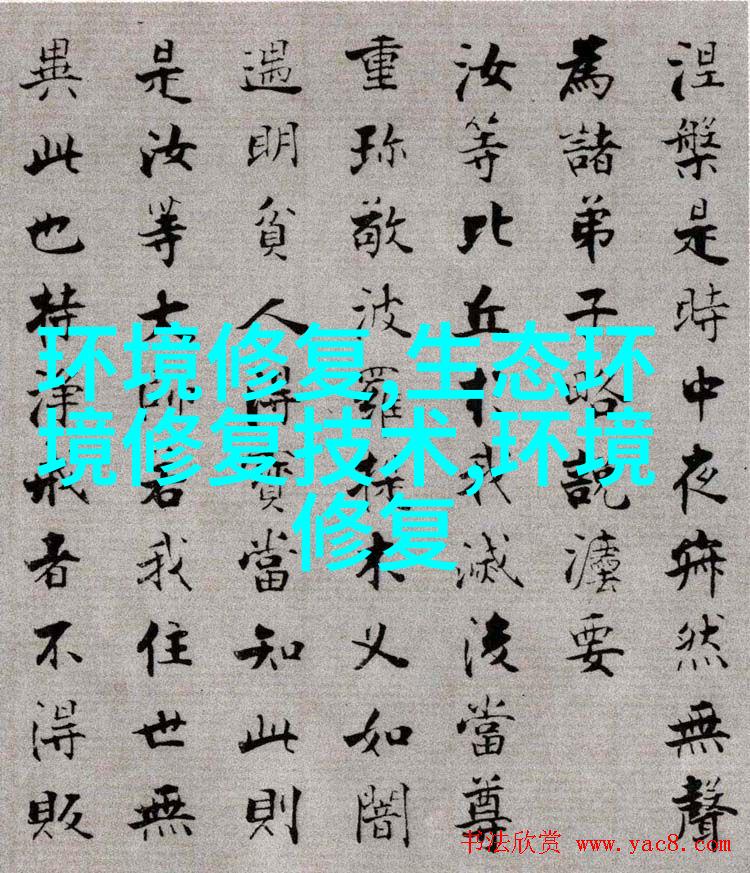 涅槃是時中夜寂然無聲
為諸弟子略說灋要
汝等比丘於我滅後當尊
重珎敬波羅提木叉如闇
遇明貧人得寶當知此則
是汝等大師若我住世無
異此也持淨戒者不得販
环境修复,生态环
境修复技术,环境
修复
书法欣赏 www.yac8.com